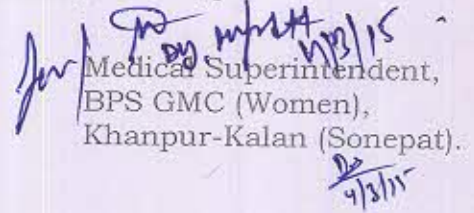 Dy.
4/3/15
Medical Superintendent,
BPS GMC (Women),
Khanpur-Kalan (Sonepat).
4/3/15